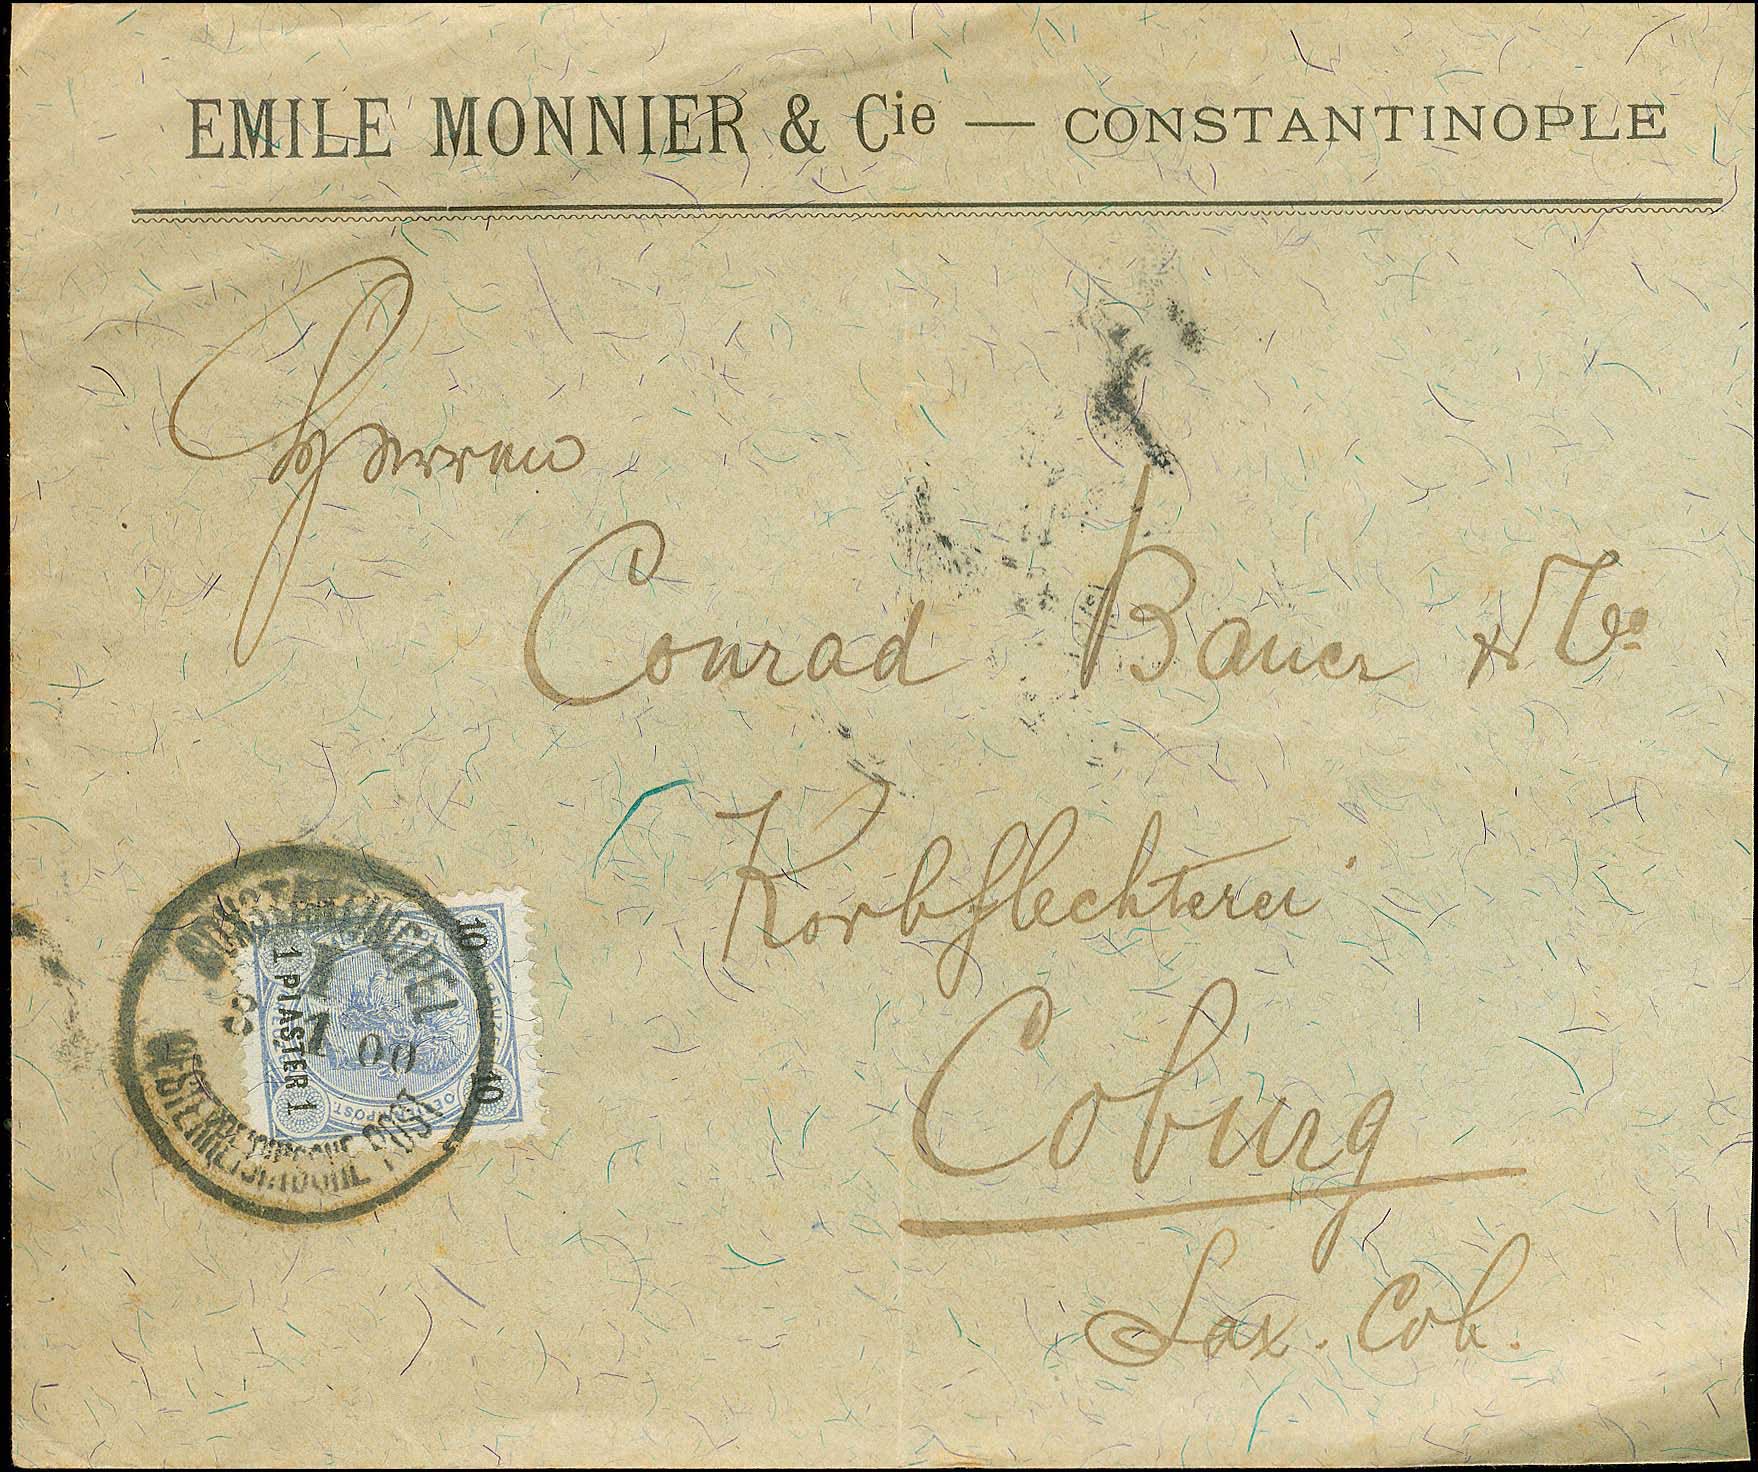 EMILE MONNIER & Cie — CONSTANTINOPLE
Herren
Conrad Bauer & Co
Korbflechterei
Coburg
Sax. Cob.
CONSTANTINOPEL
1 00
OESTERREICHISCHE POST
10 10
1 PIASTER 1